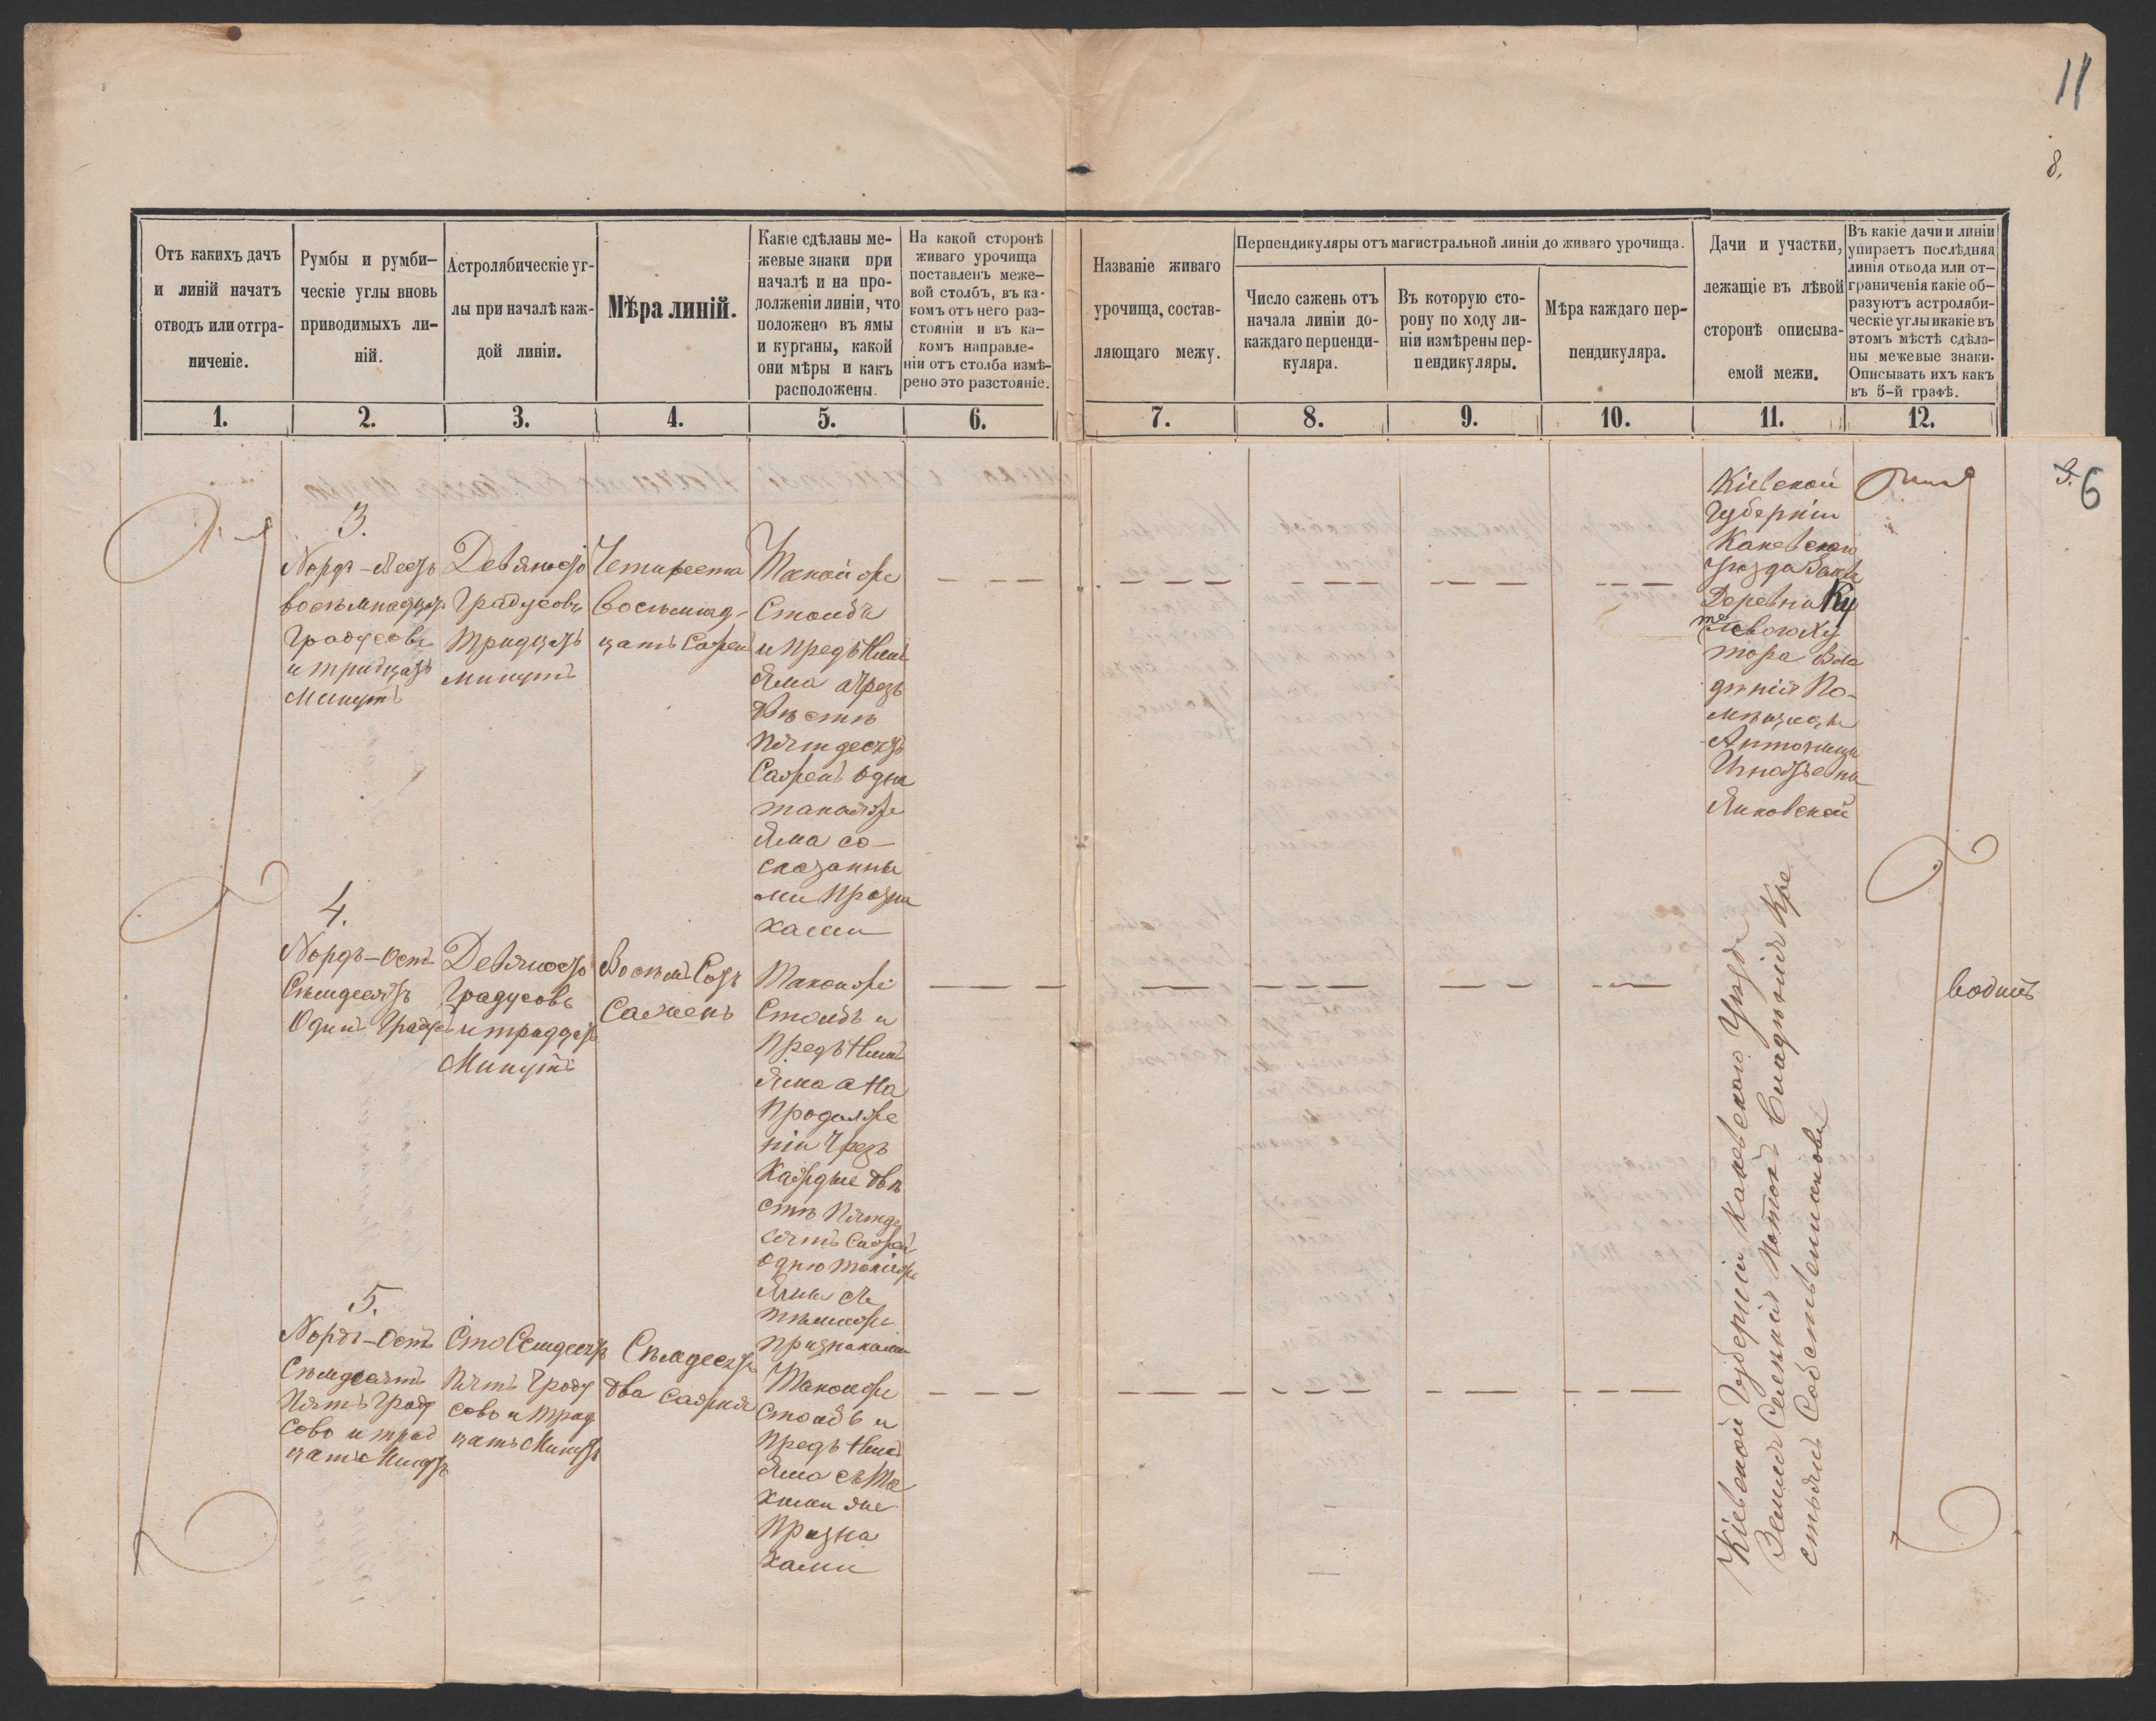 11
8.
Отъ какихъ дачъ
и линій начатъ
отводъ или отгра-
ниченіе.
Румбы и румби-
ческіе углы вновь
приводимыхъ ли-
ній.
Астролябическіе уг-
лы при началѣ каж-
дой линіи.
Мѣра линій.
Какіе сдѣланы ме-
жевые знаки при
началѣ и на про-
долженіи линіи, что
положено въ ямы
и курганы, какой
они мѣры и какъ
расположены.
На какой сторонѣ
живаго урочища
поставленъ меже-
вой столбъ, въ ка-
комъ отъ него раз-
стояніи и въ ка-
комъ направле-
ніи отъ столба измѣ-
рено это разстояніе.
Названіе живаго
урочища, состав-
ляющаго межу.
Перпендикуляры отъ магистральной линіи до живаго урочища.
Число сажень отъ
начала линіи до
каждаго перпенди-
куляра.
Въ которую сто-
рону по ходу ли-
ніи измѣрены пер-
пендикуляры.
Мѣра каждаго пер-
пендикуляра.
Дачи и участки,
лежащіе въ лѣвой
сторонѣ описыва-
емой межи.
Въ какіе дачи и линіи
упираетъ послѣдняя
линія отвода или от-
граниченія какіе об-
разуютъ астроляби-
ческіе углы и какіе въ
этомъ мѣстѣ сдѣла-
ны межевые знаки.
Описывать ихъ какъ
въ 5-й графѣ.
1. 2. 3. 4. 5. 6. 7. 8. 9. 10. 11. 12.
6
3.
Нордъ-Вестъ
восемьнадцать
Градусовъ
и тридцать
Минутъ
Девяносто
Градусовъ
Тридцать
Минутъ
Четыреста
Восемнад-
цать Сажен
Такой же
Столбъ
и предъ Нимъ
Яма а чрезъ
Двѣстѣ
Пятдесятъ
Сажень одна
такая же
Яма со
сказанны
ми призна
ками
Кіевской
Губерніи
Каневскаго
Уѣзда
Деревни Ку
тора Вла
дѣнія По-
мѣщицы
Антонины
Игнатьевны
Янковской
4.
Нордъ-Остъ
Сѣмдесятъ
Одинъ Градус
Девяносто
Градусовъ
и тридцать
Минутъ
Восемь Сотъ
Сажень
Такой же
Столбъ и
Предъ Нимъ
Яма а На
Продолже
ніи Чрезъ
Каждые двѣ
стѣ Пятде
сятъ Сажень
одно такіе же
Ямы съ
тѣми же
признаками
водитъ
5.
Нордъ-Остъ
Сѣмдесятъ
Пять Граду
совъ и трид
цать Минутъ
Сто Семдесятъ
Пять Граду
совъ и трид
цать Минутъ
Сѣмдесятъ
два сажня
Такой же
Столбъ и
Предъ Нимъ
Яма съ Та
кими же
Призна
ками
Кіевской Губерніи Каневскаго Уѣзда
Земля Селенія Потокъ Владѣнія Кре
стьянъ Собственниковъ